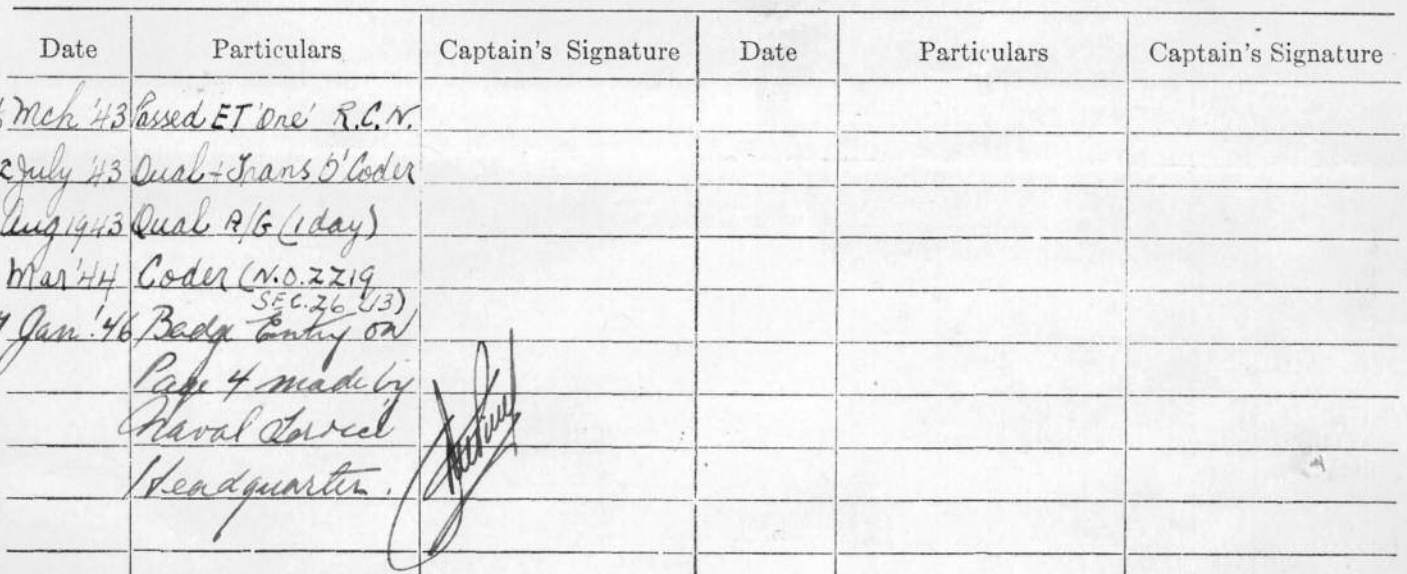 Date Particulars Captain's Signature Date Particulars Captain's Signature
Mch '43 Passed ET 'One' R.C.N.
2 July '43 Qual + Trans O' Coder
Aug 1943 Qual A/G (1 day)
Mar '44 Coder (N.O. 2219
SEC. 26 (13)
Jan. '46 Badge Entry on
Page 4 made by
Naval Service
Headquarters.